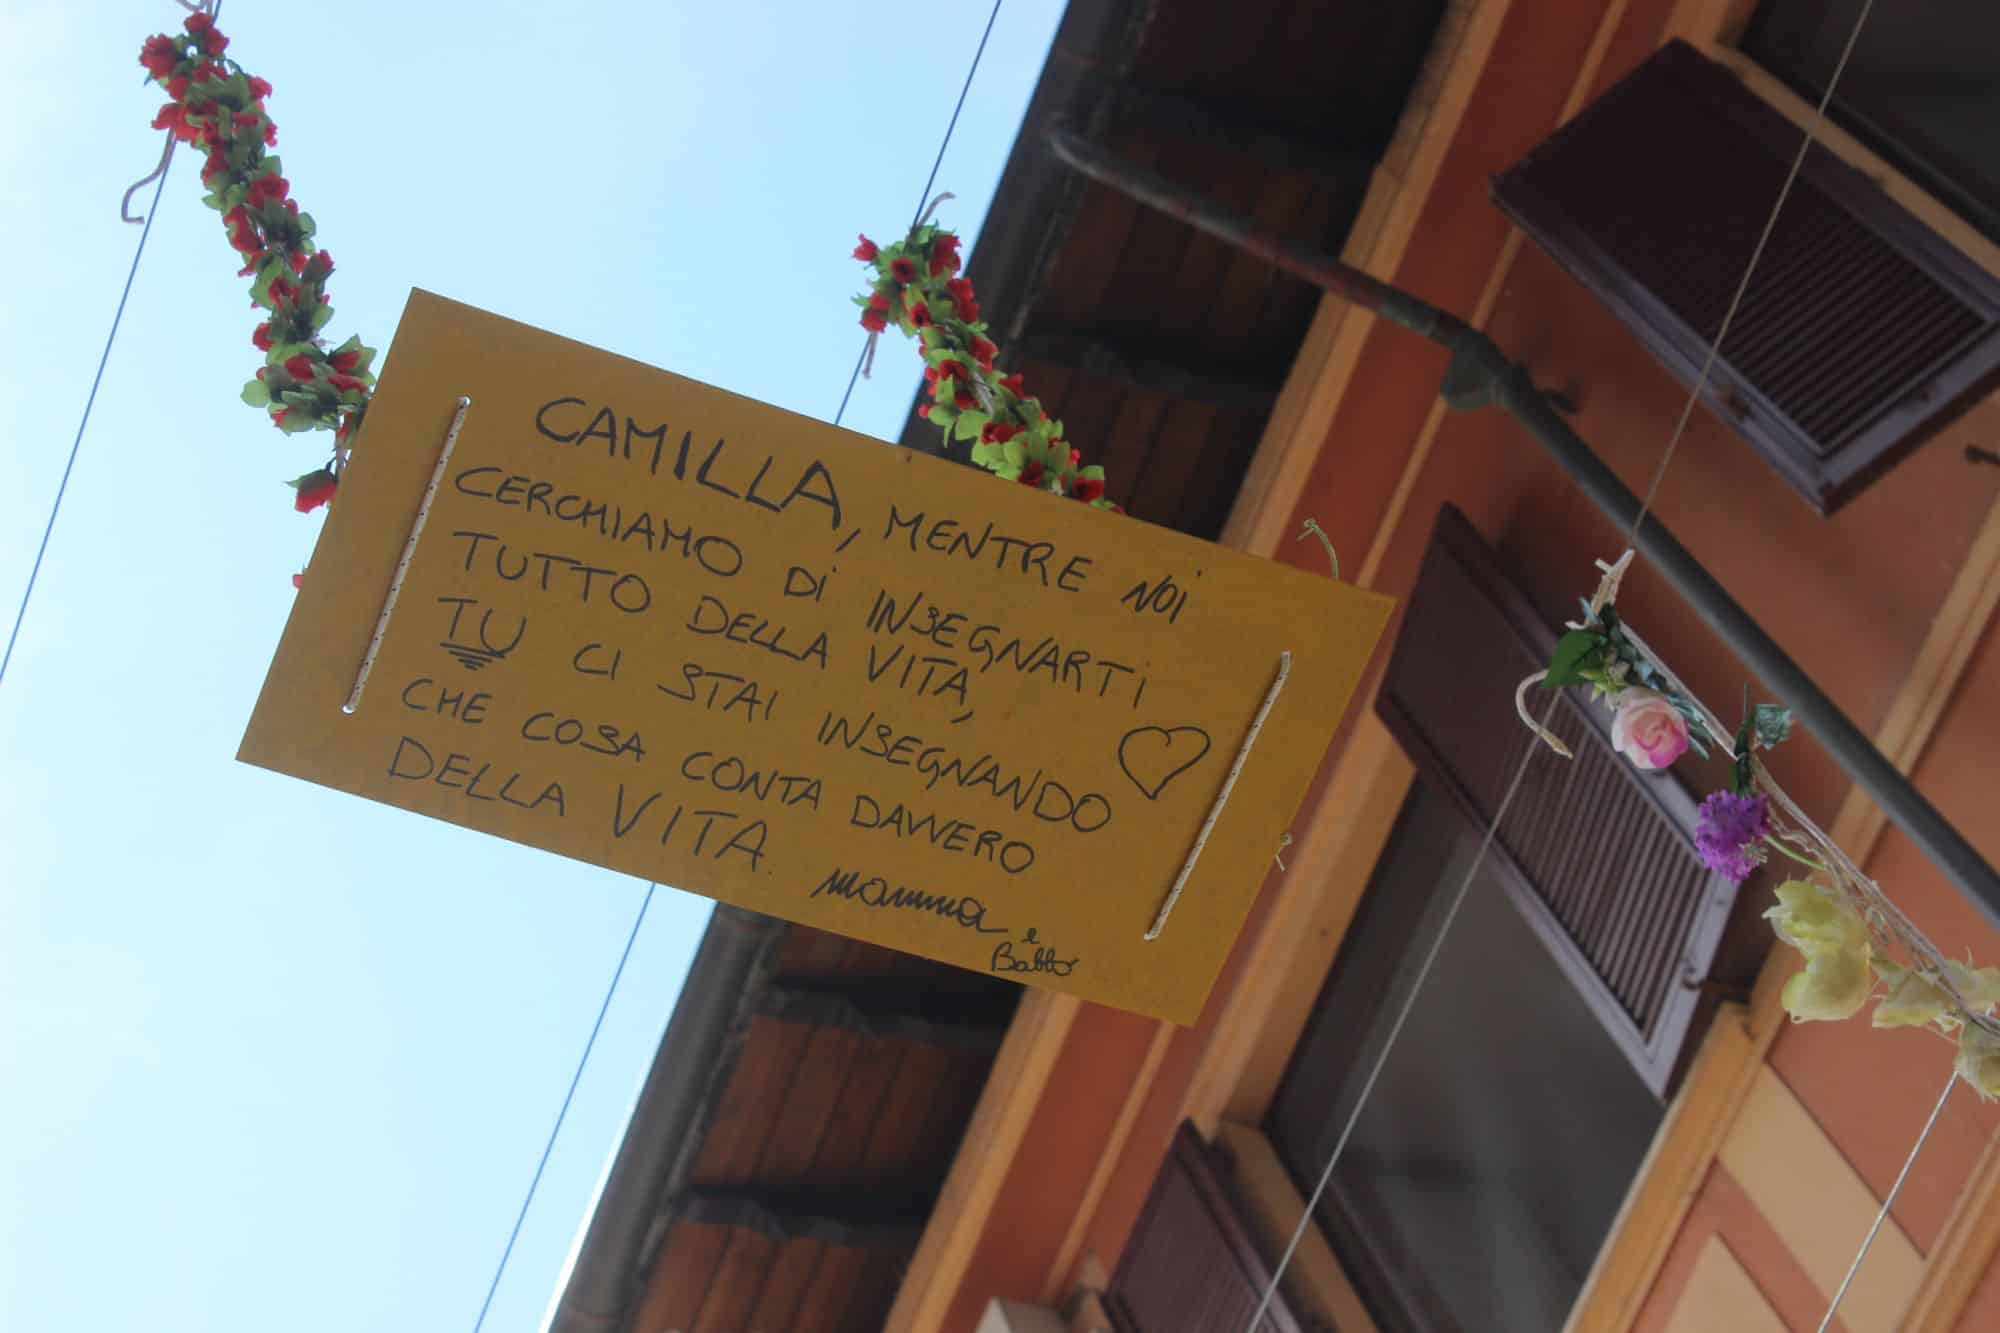 CAMILLA, MENTRE NOI
CERCHIAMO DI INSEGNARTI
TUTTO DELLA VITA,
TU CI STAI INSEGNANDO
CHE COSA CONTA DAVVERO
DELLA VITA.
mamma e
Babbo